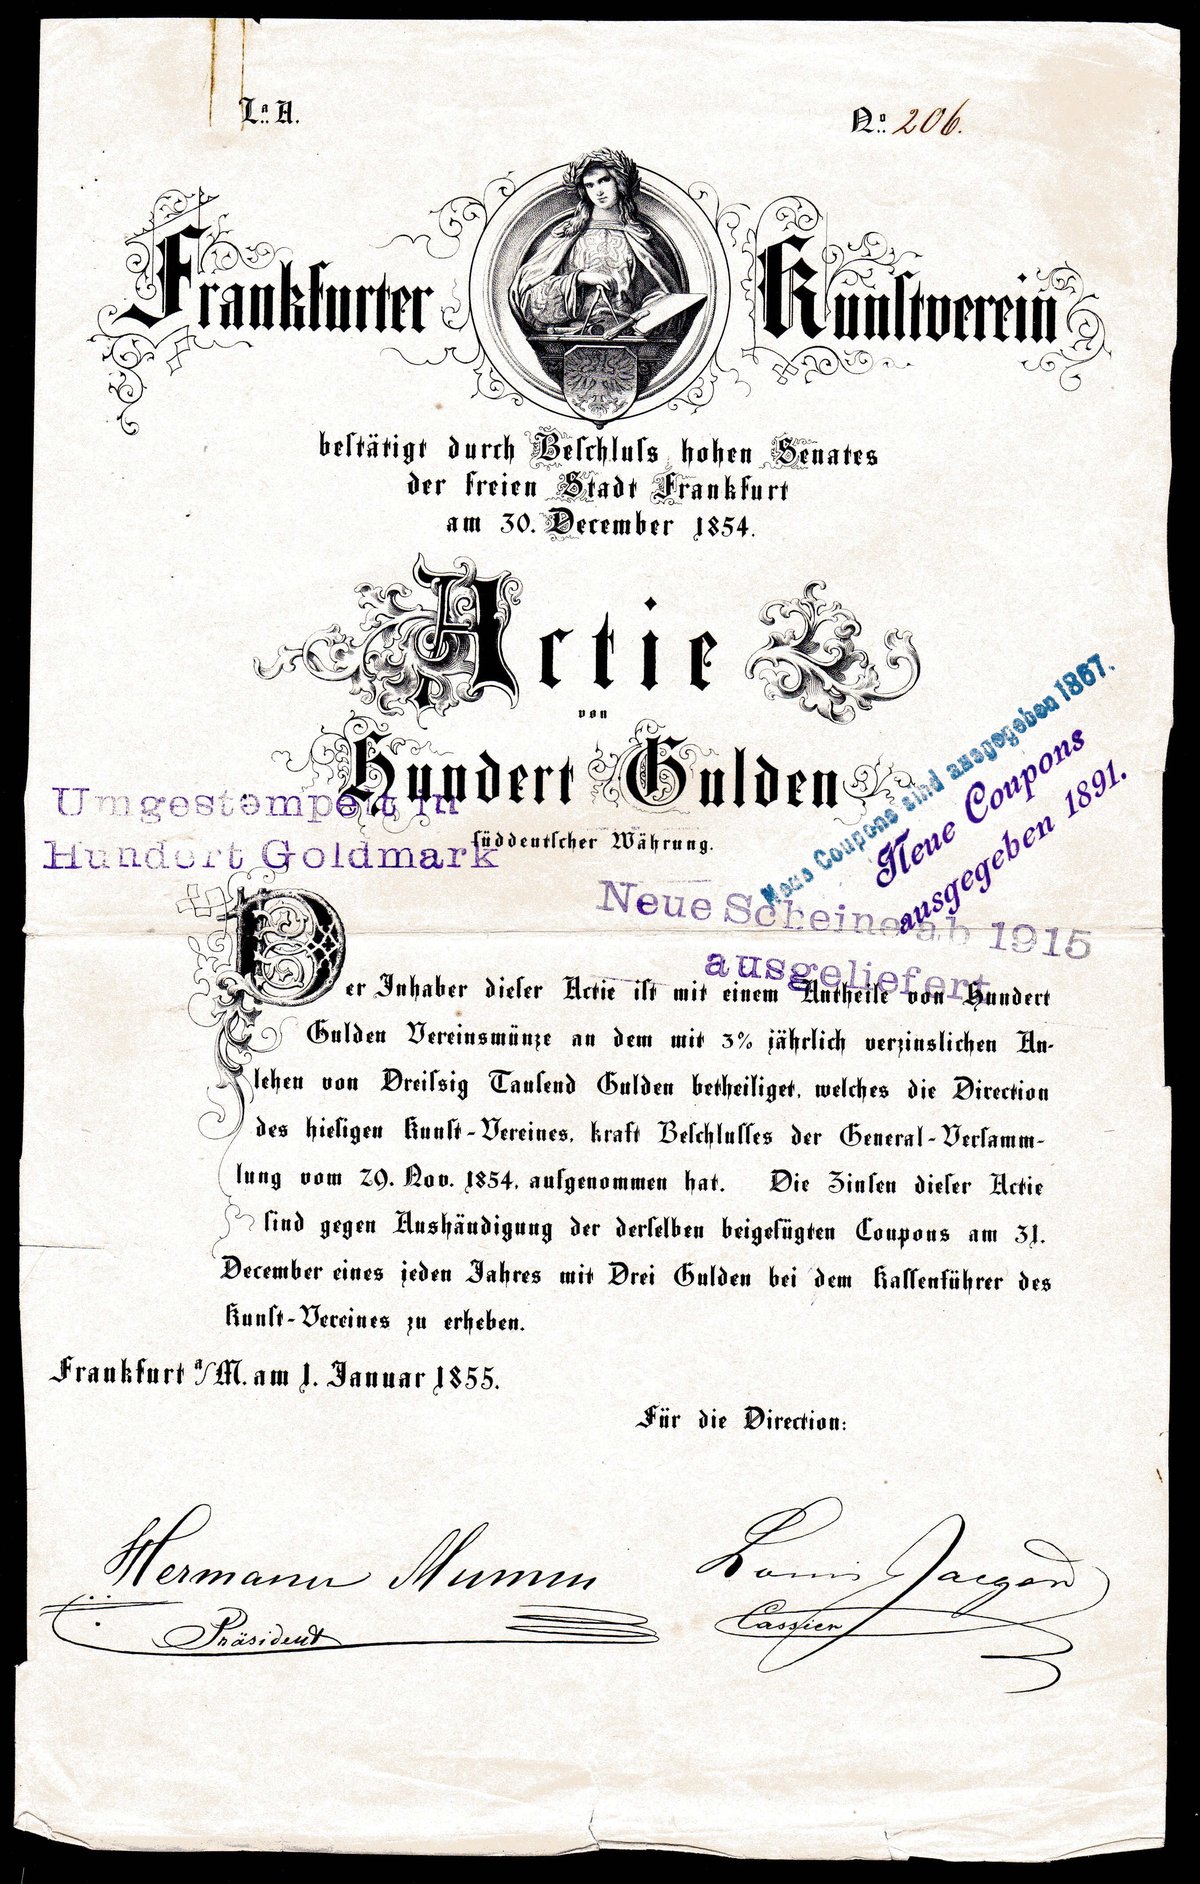 La. A.
No. 206.
Frankfurter Kunstverein
bestätigt durch Beschluss hohen Senates
der freien Stadt Frankfurt
am 30. December 1854.
Actie
von
Hundert Gulden
süddeutscher Währung.
Umgestempelt in
Hundert Goldmark
Neue Coupons sind ausgegeben 1867.
Neue Coupons
ausgegeben 1891.
Neue Scheine ab 1915
ausgeliefert
Der Inhaber dieser Actie ist mit einem Antheile von Hundert
Gulden Vereinsmünze an dem mit 3% jährlich verzinslichen An-
lehen von Dreissig Tausend Gulden betheiliget, welches die Direction
des hiesigen Kunst-Vereines, kraft Beschlusses der General-Versamm-
lung vom 29. Nov. 1854, aufgenommen hat. Die Zinsen dieser Actie
sind gegen Aushändigung der derselben beigefügten Coupons am 31.
December eines jeden Jahres mit Drei Gulden bei dem Kassenführer des
Kunst-Vereines zu erheben.
Frankfurt a/M. am 1. Januar 1855.
Für die Direction:
Hermann Mumm
Präsident
Louis Jaeger
Cassier